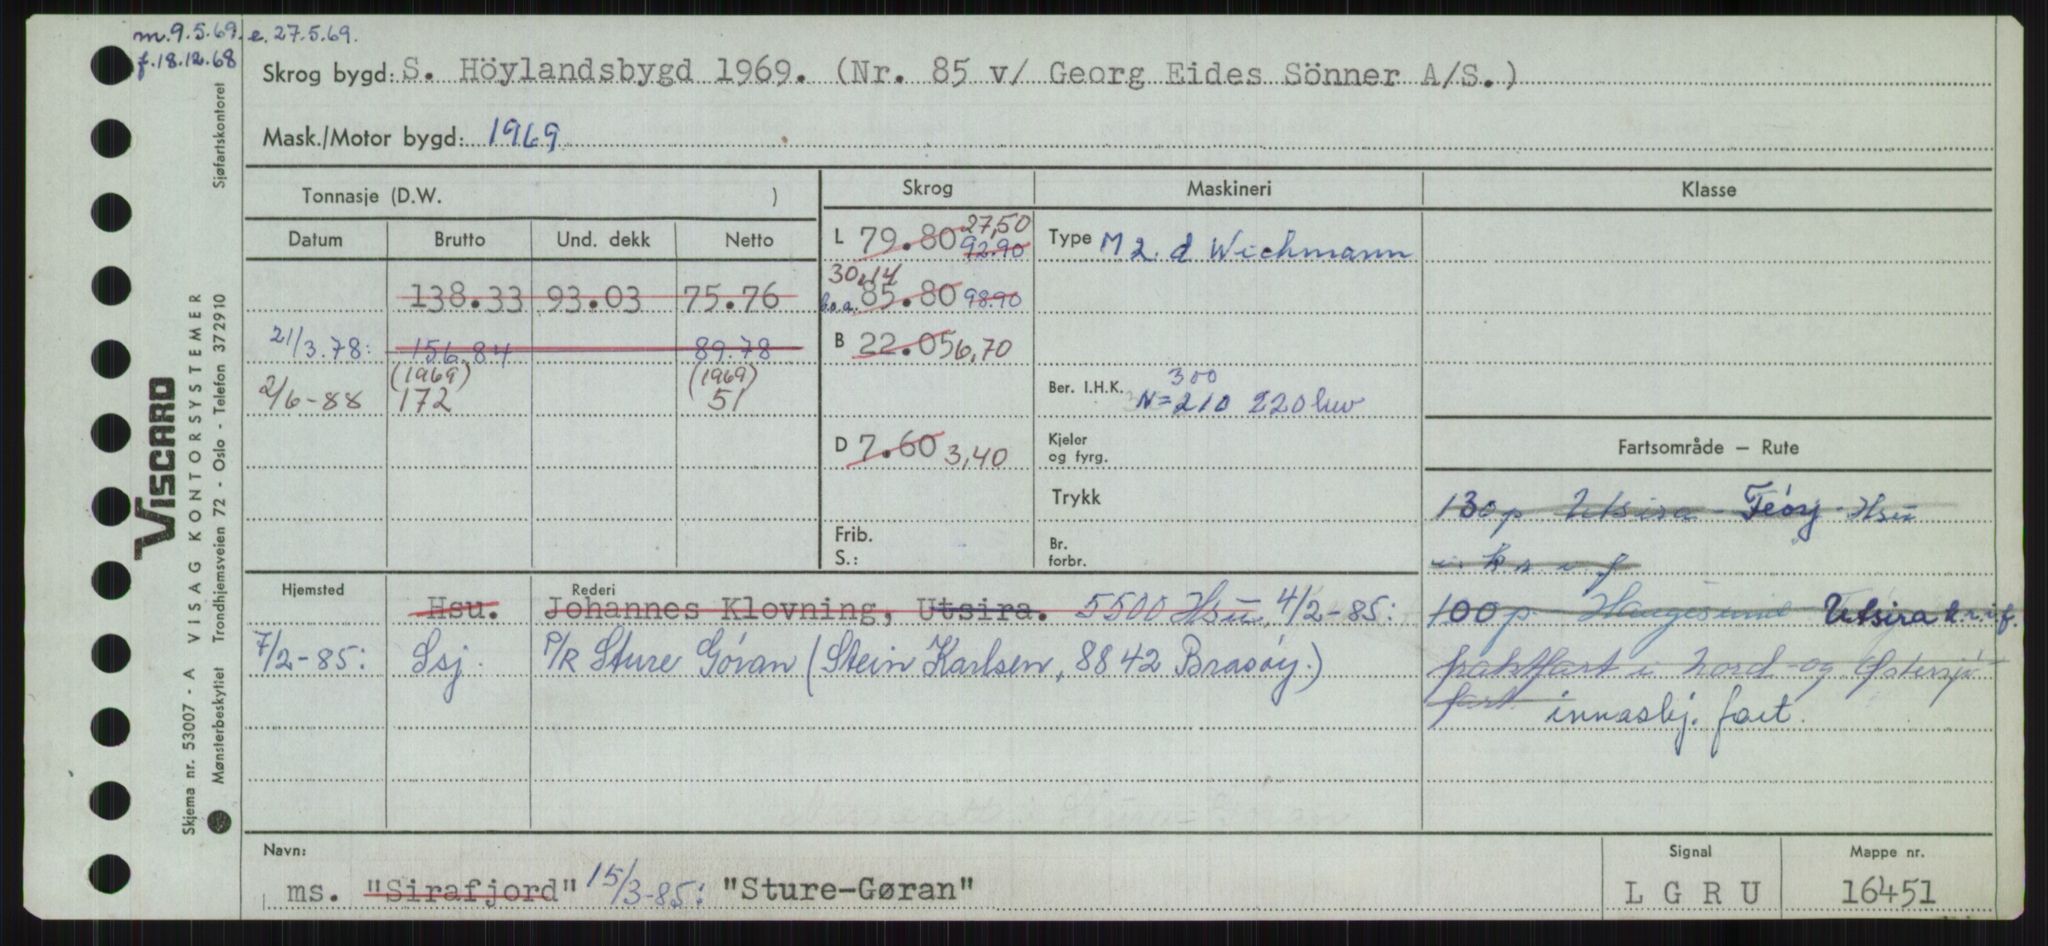 m. 9.5.69. e. 27.5.69.
f. 18.12.68
Skrog bygd: S. Höylandsbygd 1969. (Nr. 85 v/ Georg Eides Sönner A/S.)
Mask./Motor bygd: 1969
Tonnasje (D.W. )
Skrog
Maskineri
Klasse
Datum Brutto Und. dekk Netto
L 79.80 92.90 27,50
Type M 2. d Wichmann
138.33 93.03 75.76
30,14
h.o.a. 85.80 98.90
21/3.78: 156,84 89.78
B 22.05 6,70
(1969) (1969)
2/6-88 172 51
Ber. I.H.K. N=210 300 220 hw
D 7.60 3,40
Kjeler
og fyrg.
Fartsområde — Rute
Trykk
130 p Utsira - Feöy - Hsu
Frib.
S.:
Br.
forbr.
i k.r.i.f
Hjemsted Rederi
Hsu. Johannes Klovning, Utsira. 5500 Hsu, 4/2-85:
100 p Haugesund Utsira k.r.i.f.
7/2-85: Ssj. P/R Sture Gøran (Stein Karlsen, 8842 Brasøy.)
fraktfart i Nord- og Østersjö-
fart innaskj. fart.
Navn:
ms. "Sirafjord" 15/3-85: "Sture-Gøran"
Signal
L G R U
Mappe nr.
16451
Sjøfartskontoret
VISCARD
VISAG KONTORSYSTEMER
Trondhjemsveien 72 - Oslo - Telefon 372910
Skjema nr. 53007 - A
Mønsterbeskyttet